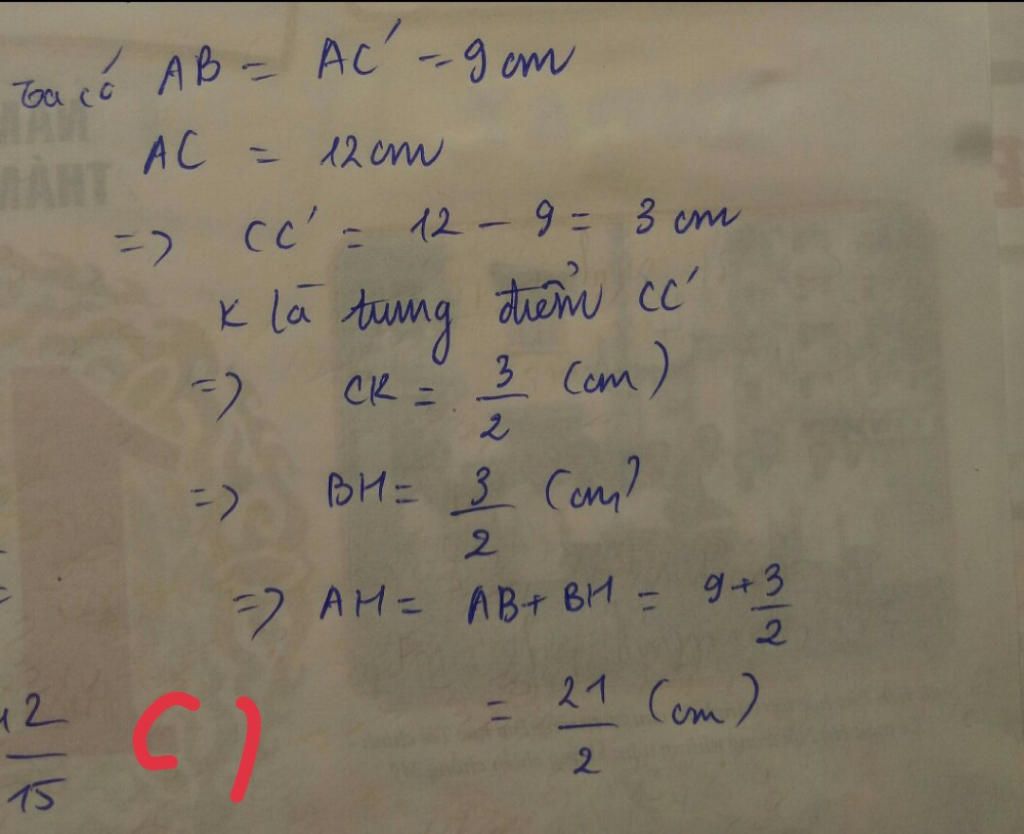 Ta có AB = AC' = 9 cm
AC = 12 cm
=> CC' = 12 - 9 = 3 cm
K là trung điểm CC'
=> CK = 3/2 (cm)
=> BH = 3/2 (cm)
=> AH = AB + BH = 9 + 3/2
= 21/2 (cm)
2
15
C)